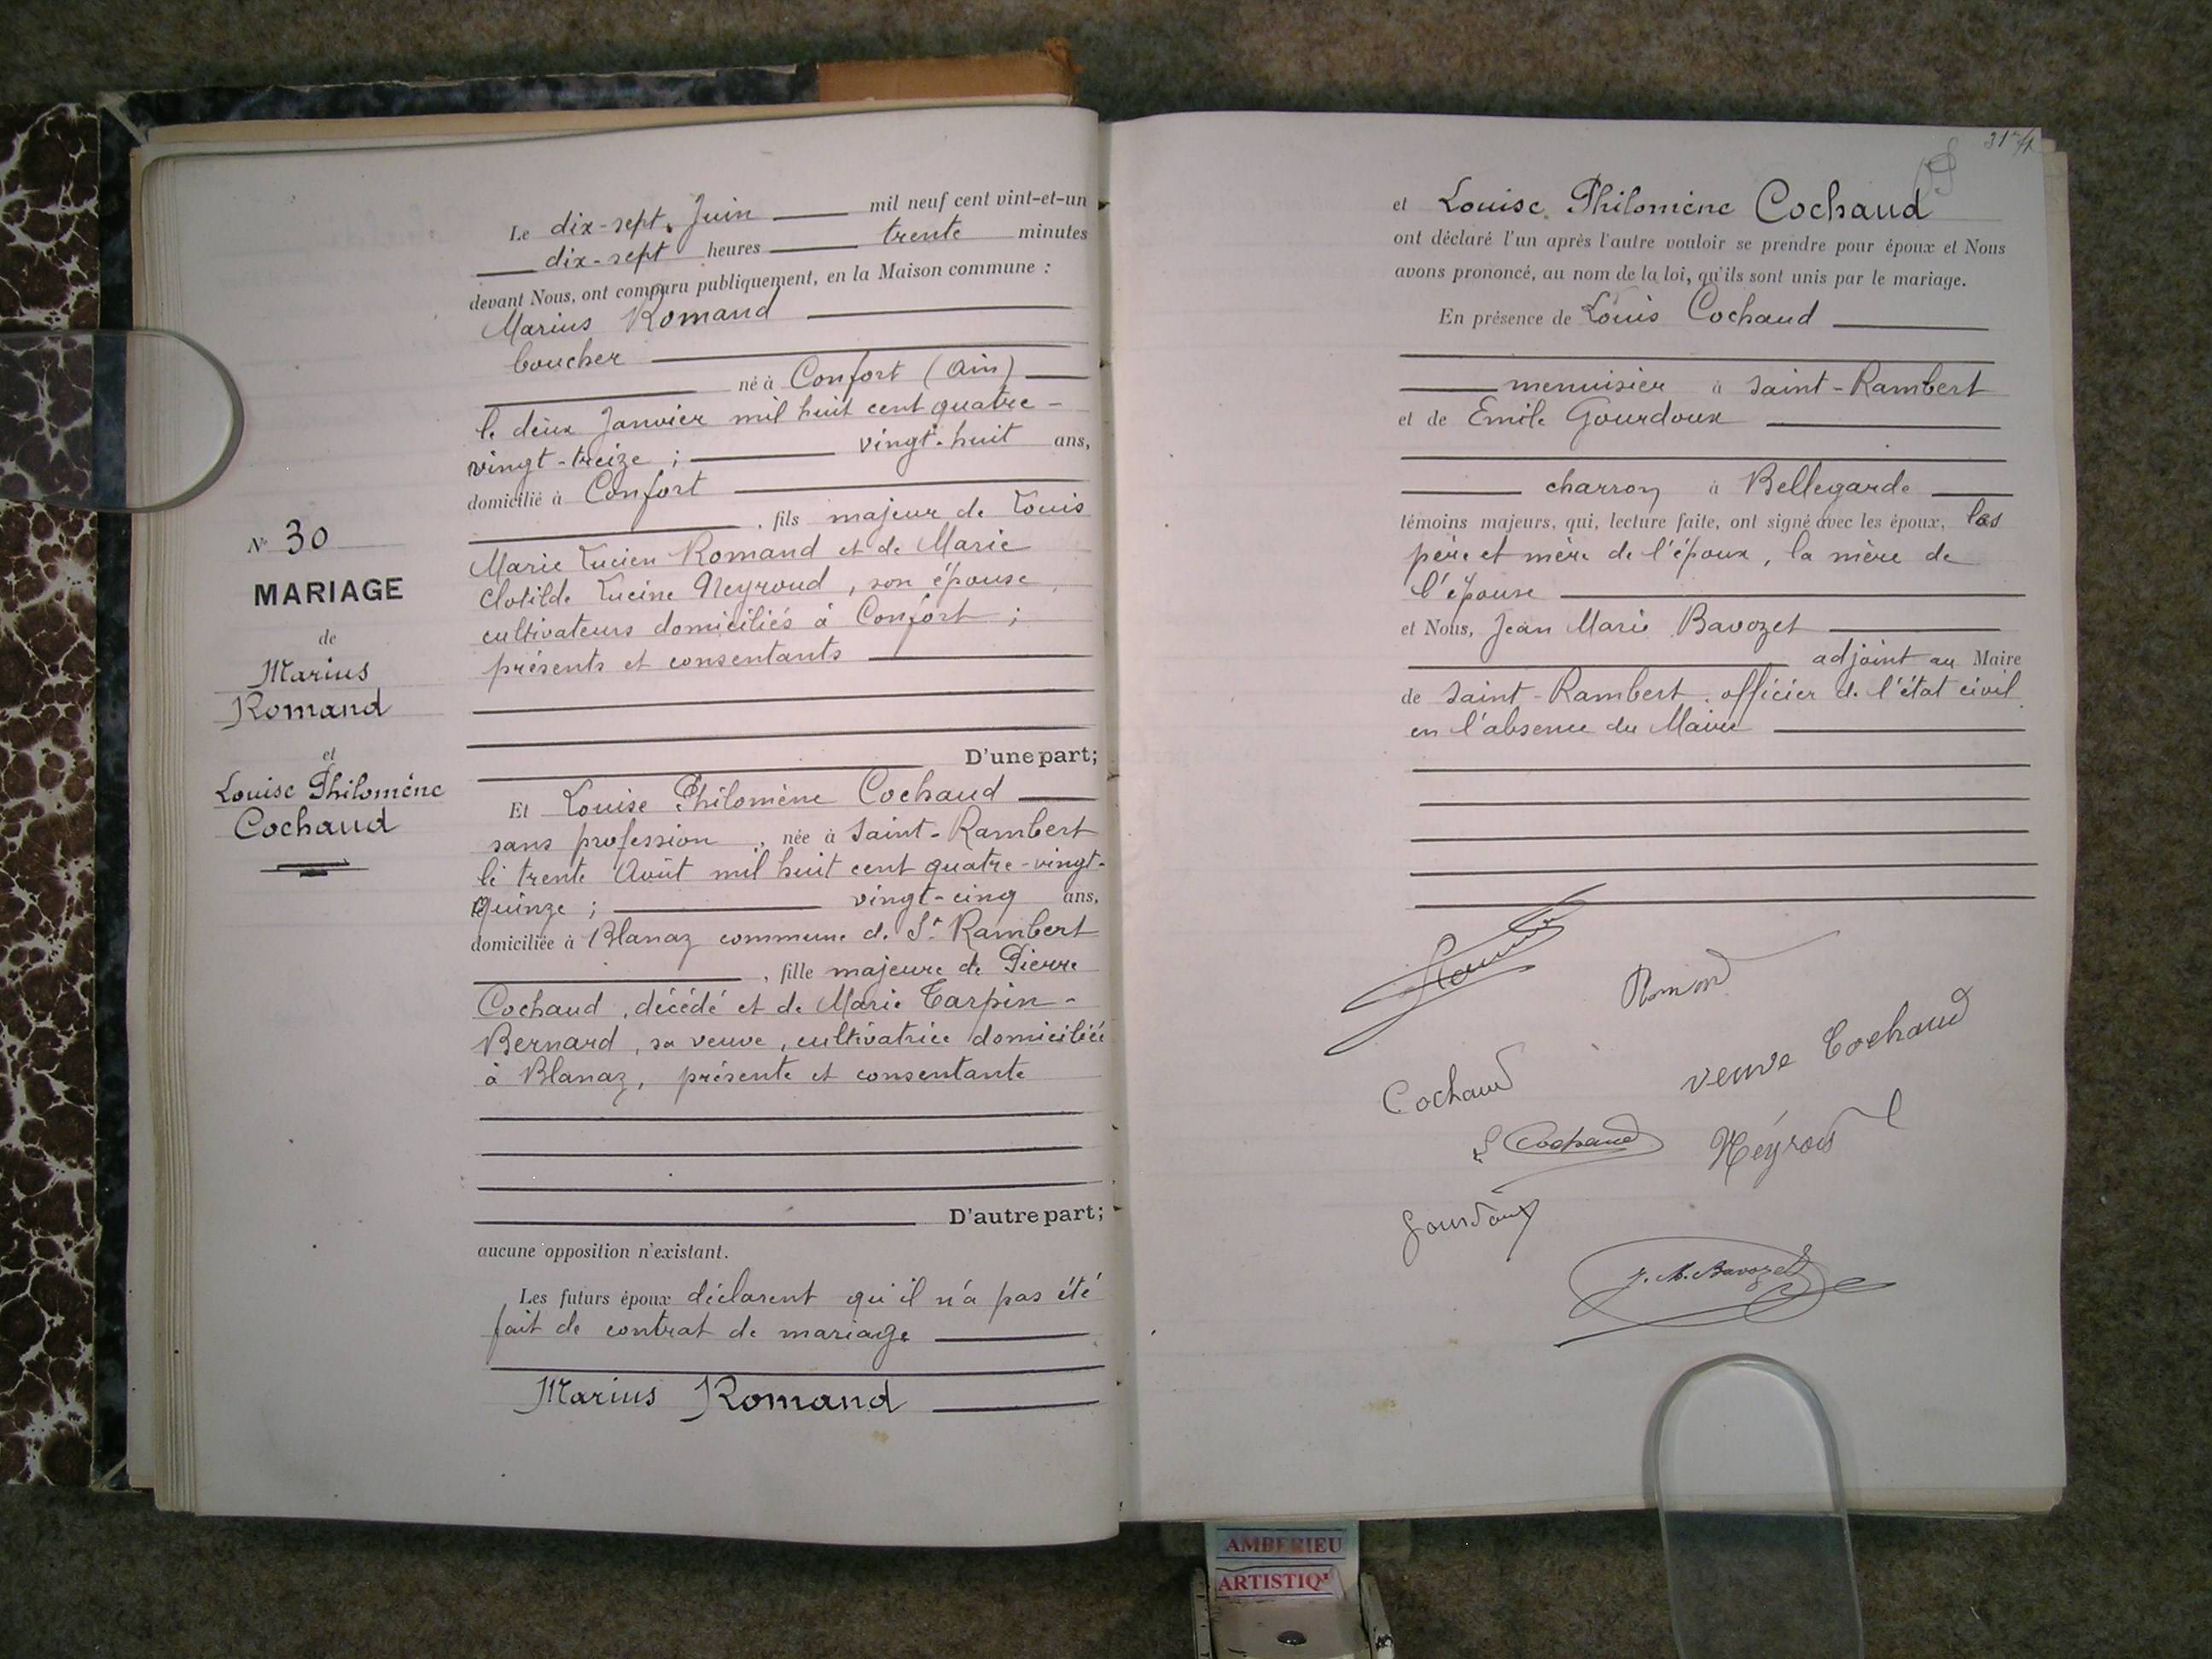 N° 30
MARIAGE
de
Marius
Romand
et
Louise Philomène
Cochaud
Le dix-sept Juin mil neuf cent vint-et-un
dix-sept heures trente minutes
devant Nous, ont comparu publiquement, en la Maison commune :
Marius Romand
boucher
né à Confort (Ain)
le deux Janvier mil huit cent quatre-
vingt-treize ; vingt-huit ans,
domicilié à Confort
, fils majeur de Louis
Marie Lucien Romand et de Marie
Clotilde Lucine Neyroud, son épouse,
cultivateurs domiciliés à Confort ;
présents et consentants
D'une part;
Et Louise Philomène Cochaud
sans profession, née à Saint-Rambert
le trente Août mil huit cent quatre-vingt-
quinze ; vingt-cinq ans,
domiciliée à Blanaz commune de St Rambert
, fille majeure de Pierre
Cochaud, décédé et de Marie Tarpin-
Bernard, sa veuve, cultivatrice domiciliée
à Blanaz, présente et consentante
D'autre part;
aucune opposition n'existant.
Les futurs époux déclarent qu'il n'a pas été
fait de contrat de mariage
Marius Romand
31
et Louise Philomène Cochaud
ont déclaré l'un après l'autre vouloir se prendre pour époux et Nous
avons prononcé, au nom de la loi, qu'ils sont unis par le mariage.
En présence de Louis Cochaud
menuisier à Saint-Rambert
et de Emile Gourdoux
charron à Bellegarde
témoins majeurs, qui, lecture faite, ont signé avec les époux, les
père et mère de l'époux, la mère de
l'épouse
et Nous, Jean Marie Bavozet
adjoint au Maire
de Saint-Rambert officier de l'état civil
en l'absence du Maire
Romand
Cochaud
veuve Cochaud
L Cochaud
Néyroud
Gourdoux
J. M. Bavozet
AMBERIEU
ARTISTIQ